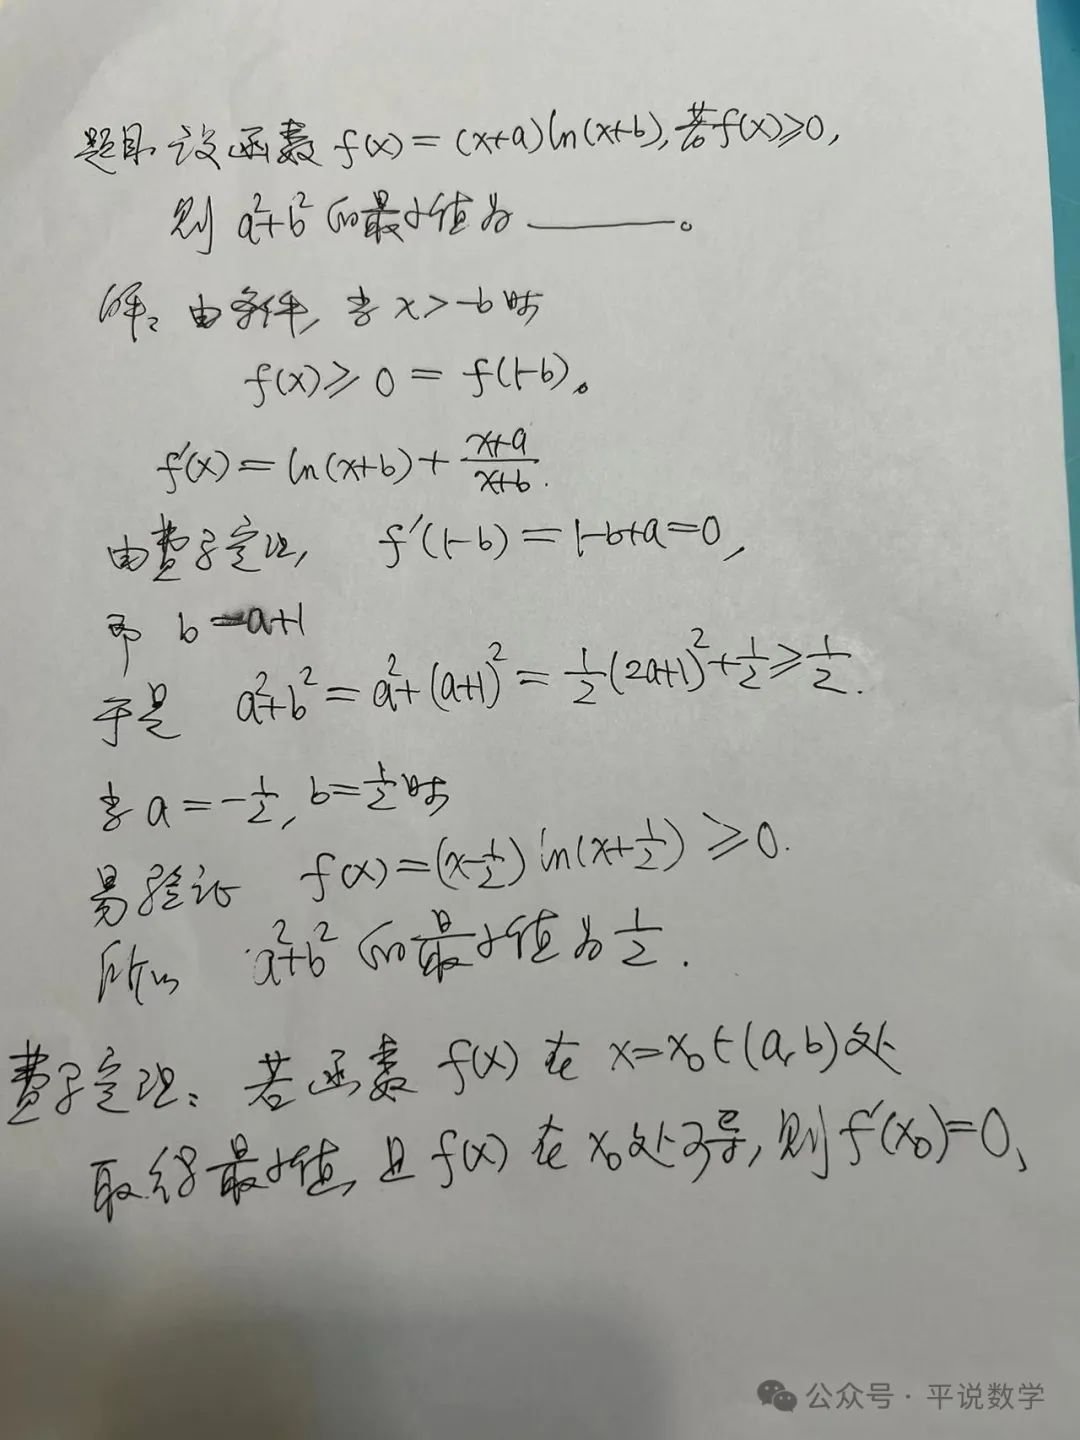 题目 设函数 f(x)=(x+a)ln(x+b), 若f(x)≥0,
则 a²+b² 的最小值为 ______。
解: 由条件, 当 x>-b 时
f(x)≥0=f(1-b)。
f'(x)=ln(x+b)+\frac{x+a}{x+b}.
由费马定理, f'(1-b)=1-b+a=0,
即 b=a+1
于是 a²+b²=a²+(a+1)²=\frac{1}{2}(2a+1)²+\frac{1}{2}≥\frac{1}{2}.
当 a=-\frac{1}{2}, b=\frac{1}{2} 时
易验证 f(x)=(x-\frac{1}{2})ln(x+\frac{1}{2})≥0.
所以 a²+b² 的最小值为 \frac{1}{2}.
费马定理: 若函数 f(x) 在 x=x₀∈(a,b)处
取得最小值, 且 f(x) 在 x₀处可导, 则 f'(x₀)=0,
公众号·平说数学